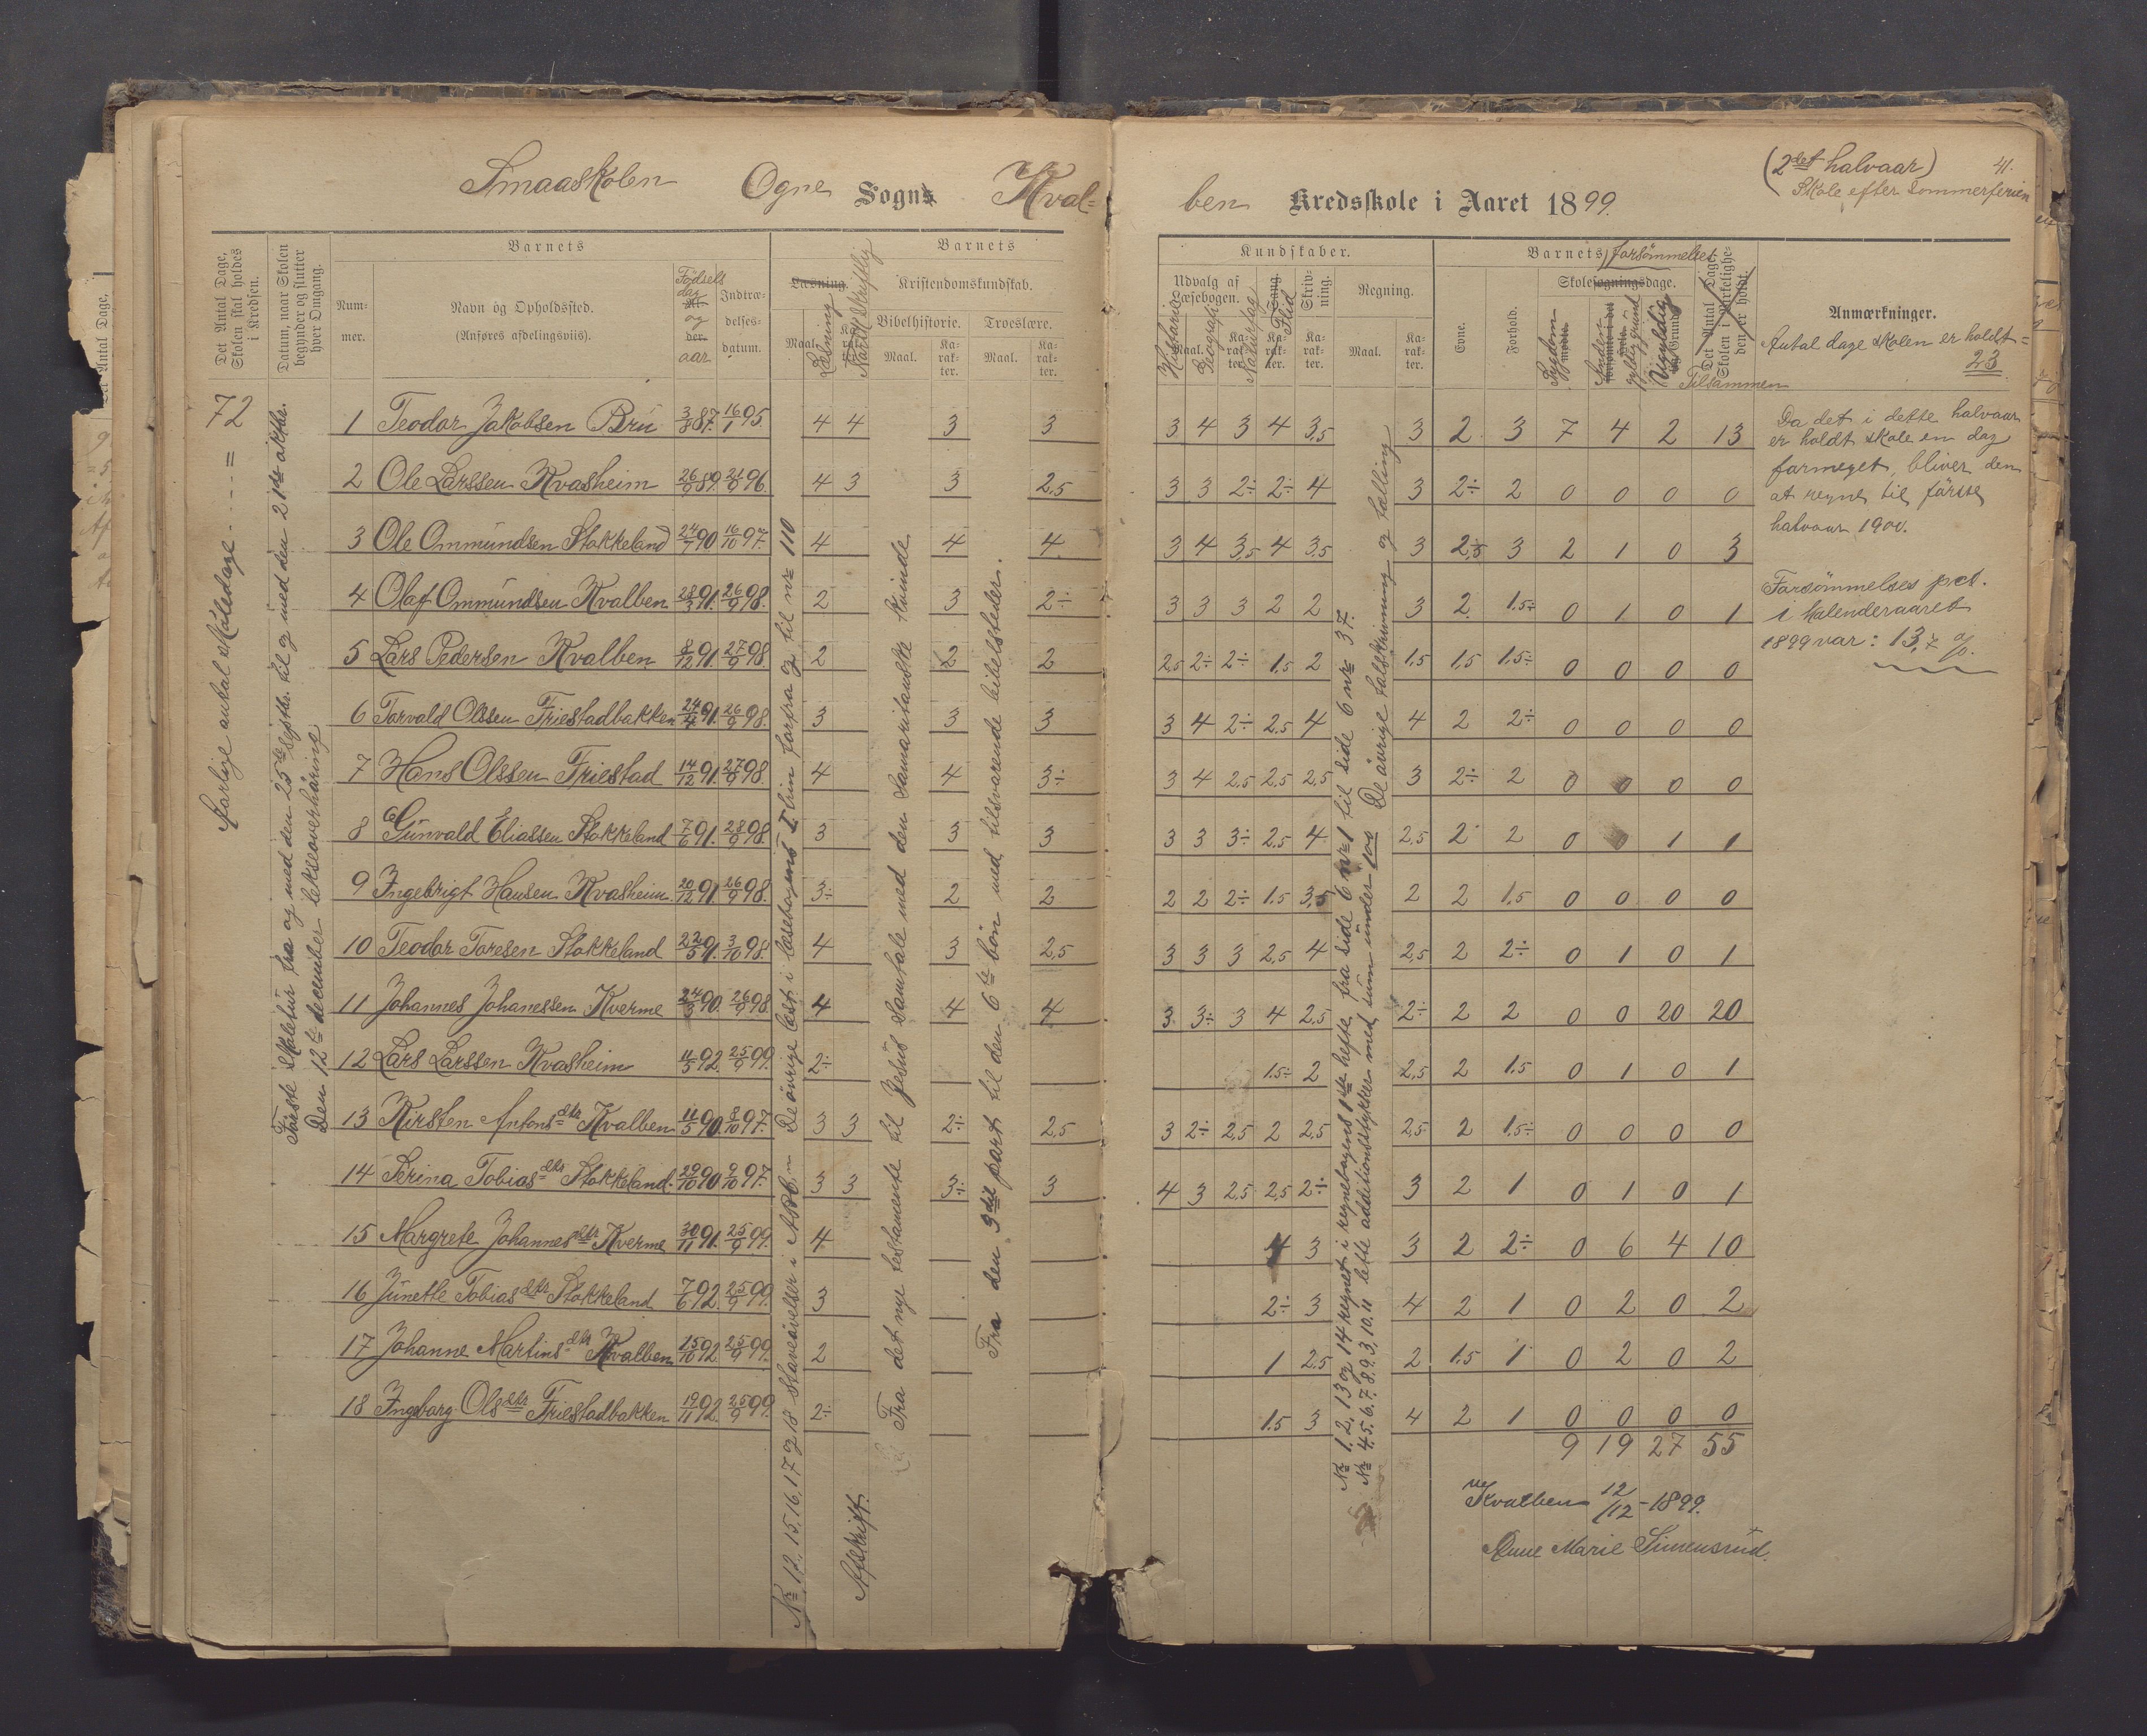 Smaaskolen Ogne Sogn Kval-
ben Kredsskole i Aaret 1899.
(2det halvaar)
Skole efter Sommerferien
41.
Det Antal Dage, Skolen skal holdes i Kredsen.
Datum, naar Skolen begynder og slutter hver Omgang.
Barnets
Nummer.
Navn og Opholdssted.
(Anføres afdelingsviis).
Fødsels dag og aar
Indtrædelsesdatum.
Barnets
Læsning.
Læsning
Maal.
Kristendomskundskab.
Bibelhistorie.
Troeslære.
Maal.
Karakter.
Maal.
Karakter.
Kundskaber.
Udvalg af Læsebogen.
Historie
Geografi
Naturfag
Sang.
Flid
Skrivning.
Karakter.
Regning.
Maal.
Karakter.
Barnets forsømmelses
Evne.
Forhold.
Skolesøgningsdage.
Sygdom
Anden gyldig grund
Ugyldig Grund
Tilsammen
Det Antal Dage, Skolen i Virkeligheden er holdt.
Anmærkninger.
Antal dage skolen er holdt =
23
72
Aarlige antal skoledage =
Første skoletur fra og med den 25de septbr. til og med den 21de oktbr.
Den 12te december lekseoverhøring
1 Teodor Jakobsen Bru 3/8 87. 16/1 95. 4 4 3 3 3 4 3 4 3,5 3 2 3 7 4 2 13
2 Ole Larssen Kvasheim 26/9 89. 21/9 96. 4 3 3 2,5 3 3 2÷ 2÷ 4 3 2÷ 2 0 0 0 0
3 Ole Ommundsen Stokkeland 24/7 90 16/10 97. 4 4 4 3 4 3,5 4 3,5 3 2,5 3 2 1 0 3
4 Olaf Ommundsen Kvalben 28/3 91. 26/9 98. 2 3 2÷ 3 3 3 2 2 3 2 1.5÷ 0 1 0 1
5 Lars Pedersen Kvalben 8/12 91. 27/9 98. 2 2 2 2,5 2÷ 2÷ 1,5 2 1,5 1,5 1,5÷ 0 0 0 0
6 Torvald Olssen Friestadbakken 24/4 91. 26/9 98. 3 3 3 3 4 2÷ 2.5 4 4 2 2÷ 0 0 0 0
7 Hans Olssen Friestad 14/12 91. 27/9 98. 4 4 3÷ 3 4 2,5 2,5 2,5 3 2÷ 2 0 0 0 0
8 Gunvald Eliassen Stokkeland 7/6 91. 28/9 98. 3 3 3 3 3 3÷ 2.5 4 2,5 2 2 0 0 1 1
9 Ingebrigt Hansen Kvasheim 20/12 91. 26/9 98. 3÷ 2 2 2 2 2÷ 1.5 3,5 2 2 1,5 0 0 0 0
10 Teodor Toresen Stokkeland 22/5 91. 3/10 98. 4 3 2,5 3 3 3 2,5 4 2,5 2 2÷ 0 1 0 1
11 Johannes Johanessen Kverme 24/3 90. 26/9 98. 4 4 4 3 3÷ 3 4 2,5 2÷ 2 2 0 0 20 20
12 Lars Larssen Kvasheim 11/5 92. 25/9 99. 2÷ 1.5÷ 2 2,5 2 1.5 0 1 0 1
13 Kirsten Antonsdtr Kvalben 11/5 90. 8/10 97. 3 3 2÷ 2,5 3 2÷ 2,5 2 2,5 2,5 2 1.5÷ 0 0 0 0
14 Serina Tobiasdtr Stokkeland. 29/10 90 9/10 97. 3 3 3÷ 3 4 3 2,5 2,5 2÷ 3 2 1 0 1 0 1
15 Margrete Johannesdtr Kverme 30/11 91. 25/9 99. 4 4 3 3 2 2÷ 0 6 4 10
16 Junette Tobiasdtr Stokkeland 7/6 92. 25/9 99. 3 2÷ 3 4 2 1 0 2 0 2
17 Johanne Martinsdtr Kvalben 15/10 92. 25/9 99. 2 1 2.5 2 1.5 1 0 2 0 2
18 Ingeborg Olsdtr Friestadbakken 19/11 92. 25/9 99. 2÷ 1.5 3 4 2 1 0 0 0 0
9 19 27 55
Nr 12, 15, 16, 17 og 18 Staveøvelser i ABC'n De øvrige læst i læsebogens I trin forfra og til nr 110
Afskrift.
Fra det nye testamente til Jesus Samtale med den Samaritanske kvinde
Fra den 3die part til den 6te bøn med tilsvarende bibelsteder.
Nr 1, 2, 13 og 14 regnet i regnebogens 1ste hefte, fra side 6 nr 1 til side 6 nr 37.
Nr 4. 5. 6. 7. 8. 9. 3, 10. 11 lette additionsstykker med sum under 100 De øvrige talskrivning og tælling
Da det i dette halvaar
er holdt skole en dag
formeget, bliver den
at regne til første
halvaar 1900.
Forsømmelses pct.
i kalenderaaret
1899 var: 13,7 %.
Kvalben 12/12 - 1899.
Anne Marie Simensrud.